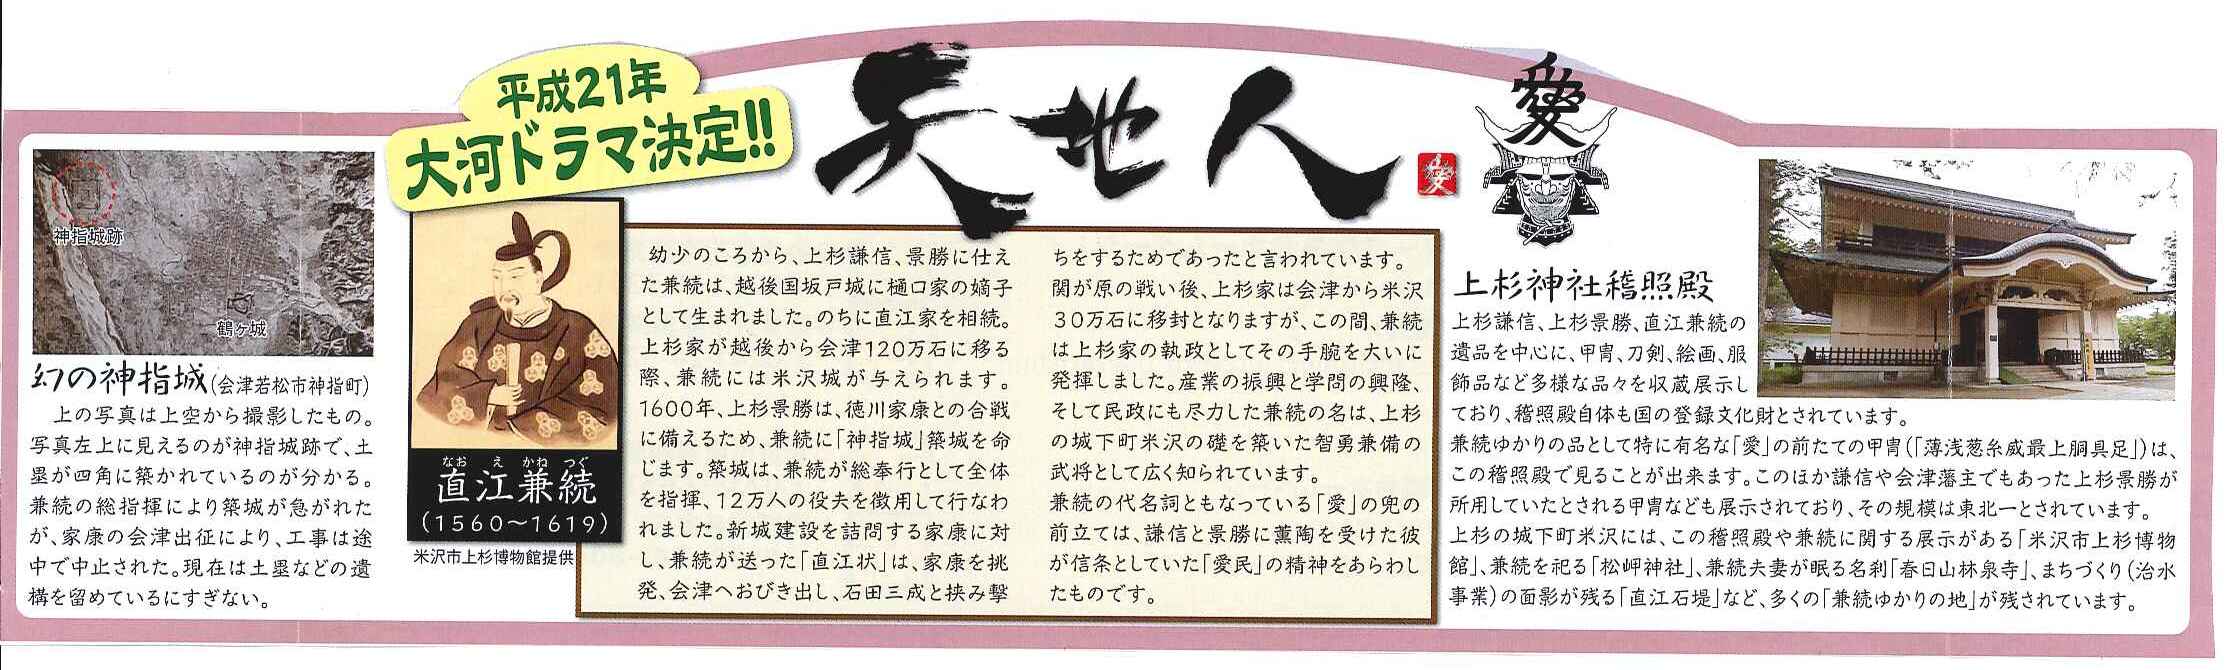 平成21年
大河ドラマ決定!!
天地人
愛
愛
神指城跡
鶴ヶ城
幻の神指城(会津若松市神指町)
上の写真は上空から撮影したもの。
写真左上に見えるのが神指城跡で、土
塁が四角に築かれているのが分かる。
兼続の総指揮により築城が急がれた
が、家康の会津出征により、工事は途
中で中止された。現在は土塁などの遺
構を留めているにすぎない。
なおえかねつぐ
直江兼続
(1560〜1619)
米沢市上杉博物館提供
幼少のころから、上杉謙信、景勝に仕え
た兼続は、越後国坂戸城に樋口家の嫡子
として生まれました。のちに直江家を相続。
上杉家が越後から会津120万石に移る
際、兼続には米沢城が与えられます。
1600年、上杉景勝は、徳川家康との合戦
に備えるため、兼続に「神指城」築城を命
じます。築城は、兼続が総奉行として全体
を指揮、12万人の役夫を徴用して行なわ
れました。新城建設を詰問する家康に対
し、兼続が送った「直江状」は、家康を挑
発、会津へおびき出し、石田三成と挟み撃
ちをするためであったと言われています。
関が原の戦い後、上杉家は会津から米沢
30万石に移封となりますが、この間、兼続
は上杉家の執政としてその手腕を大いに
発揮しました。産業の振興と学問の興隆、
そして民政にも尽力した兼続の名は、上杉
の城下町米沢の礎を築いた智勇兼備の
武将として広く知られています。
兼続の代名詞ともなっている「愛」の兜の
前立ては、謙信と景勝に薫陶を受けた彼
が信条としていた「愛民」の精神をあらわし
たものです。
上杉神社稽照殿
上杉謙信、上杉景勝、直江兼続の
遺品を中心に、甲冑、刀剣、絵画、服
飾品など多様な品々を収蔵展示し
ており、稽照殿自体も国の登録文化財とされています。
兼続ゆかりの品として特に有名な「愛」の前たての甲冑(「薄浅葱糸威最上胴具足」)は、
この稽照殿で見ることが出来ます。このほか謙信や会津藩主でもあった上杉景勝が
所用していたとされる甲冑なども展示されており、その規模は東北一とされています。
上杉の城下町米沢には、この稽照殿や兼続に関する展示がある「米沢市上杉博物
館」、兼続を祀る「松岬神社」、兼続夫妻が眠る名刹「春日山林泉寺」、まちづくり(治水
事業)の面影が残る「直江石堤」など、多くの「兼続ゆかりの地」が残されています。